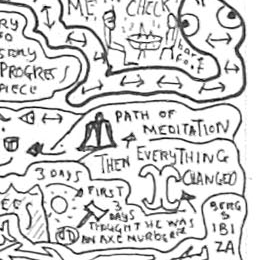 ME CHECK
RY
FO
STORY
PROGRESS
PIECE
PATH OF
MEDITATION
THEN EVERYTHING
CHANGED
3 DAYS
FIRST
3
DAYS
THOUGHT HE WAS
AN AXE MURDERER
IBI
ZA